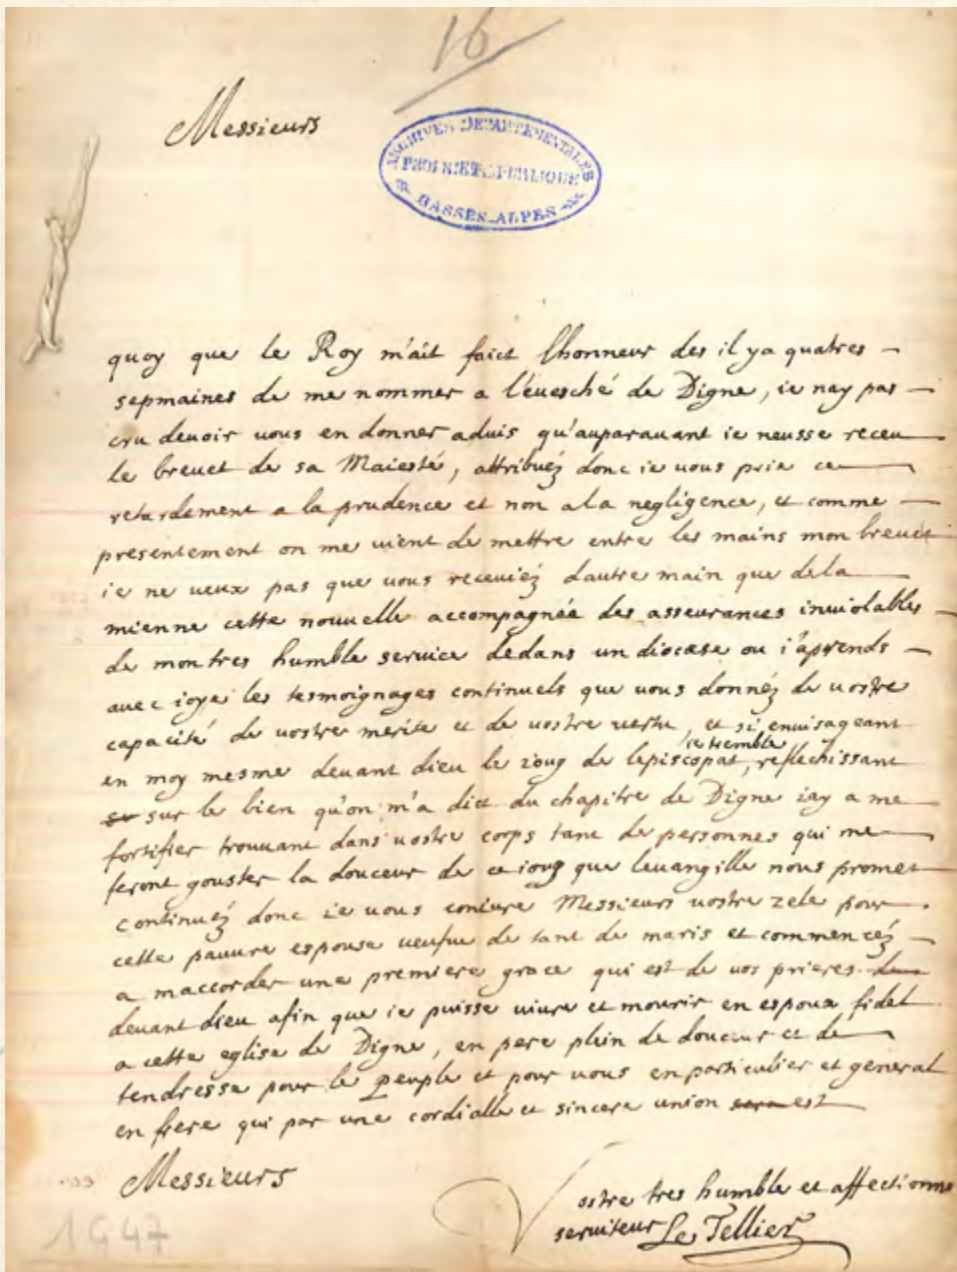 16
Messieurs
ARCHIVES DEPARTEMENTALES
PROPRIETE PUBLIQUE
BASSES-ALPES
quoy que le Roy m'ait faict lhonneur des il ya quatres
sepmaines de me nommer a l'euesché de Digne, ie nay pas
cru deuoir vous en donner aduis qu'auparauant ie neusse receu
le breuet de sa Maiesté, attribuéz donc ie vous prie ce
retardement a la prudence et non ala negligence, et comme
presentement on me vient de mettre entre les mains mon breuet
ie ne ueux pas que vous receuiéz dautre main que dela
mienne cette nouuelle accompagnée des asseurances inuiolables
de mon tres humble seruice dedans un diocæse ou i'aprends
auec ioye les tesmoignages continuels que vous donnéz de vostre
capacité de vostre merite et de vostre uertu, et si enuisageant
en moy mesme deuant dieu le ioug de lepiscopat, ie tremble, reflechissant
sur le bien qu'on m'a dict du chapitre de Digne iay a me
fortifier trouuant dans vostre corps tant de personnes qui me
feront gouster la douceur de ce ioug que leuangille nous promet
continuéz donc ie vous coniure Messieurs vostre zele pour
cette pauure espouse ueufue de tant de maris et commencéz
a maccorder une premiere grace qui est de vos prieres
deuant dieu afin que ie puisse uiure et mourir en espoux fidel
a cette eglise de Digne, en pere plein de douceur et de
tendresse pour le peuple et pour vous en particulier et general
en frere qui par une cordialle et sincere union est
Messieurs
Vostre tres humble et affectionné
seruiteur Le Tellier
1 G 47